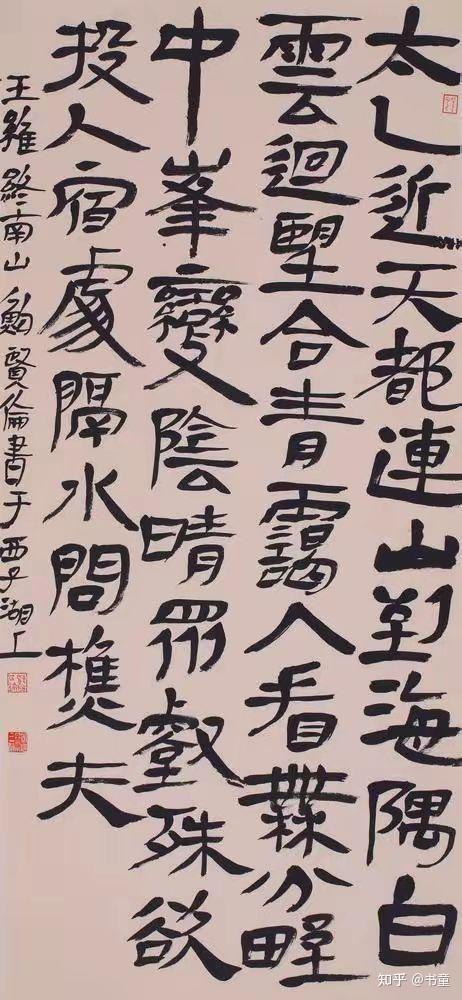 太乙近天都連山到海隅白
雲迴望合青靄入看無分野
中峯變陰晴眾壑殊欲
投人宿處隔水問樵夫
王維終南山鮑賢倫書于西子湖上
知乎 @书童